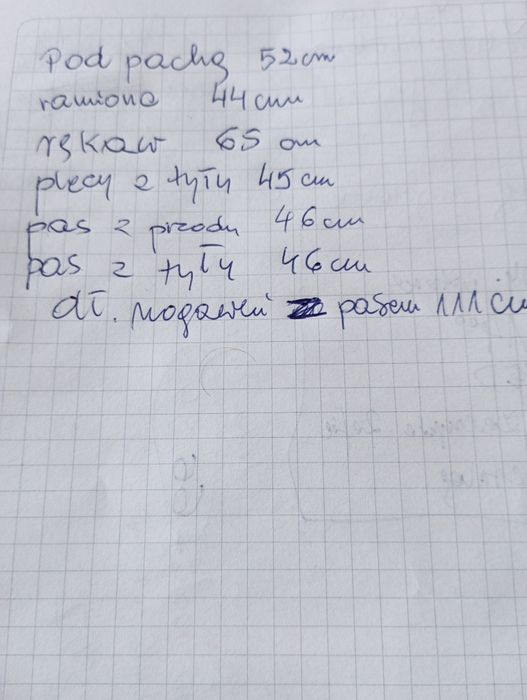 Pod pachą 52 cm
ramiona 44 cm
rękaw 65 cm
plecy z tyły 45 cm
pas z przodu 46 cm
pas z tyły 46 cm
dł. nogawki pasem 111 cm